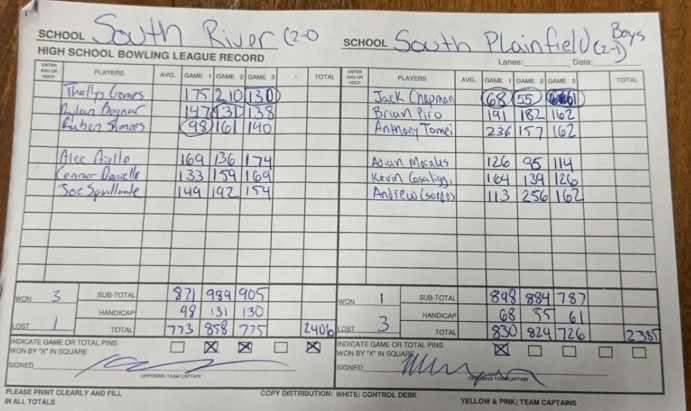 SCHOOL South River (2-0
HIGH SCHOOL BOWLING LEAGUE RECORD
ENTER AVG OR HDCP PLAYERS AVG. GAME 1 GAME 2 GAME 3 TOTAL
Thallys Gomes 175 210 130
Dylan Bognar 147 131 138
Ruben 98 161 140
Alec Aiello 169 136 174
Connor 133 159 169
Joe Squillante 149 192 154
WON 3 SUB-TOTAL 871 989 905
HANDICAP 98 131 130
LOST 1 TOTAL 773 858 775 2406
INDICATE GAME OR TOTAL PINS
WON BY "X" IN SQUARE
SIGNED
OPPOSING TEAM CAPTAIN
PLEASE PRINT CLEARLY AND FILL
IN ALL TOTALS
SCHOOL South Plainfield (2-1) Boys
Lanes: Date:
ENTER AVG OR HDCP PLAYERS AVG. GAME 1 GAME 2 GAME 3 TOTAL
Jack Chapman 68 55 61
Brian Piro 191 182 162
Anthony Tomei 236 157 162
Adian Morales 126 95 114
Kevin 164 139 126
Andrew 113 256 162
WON 1 SUB-TOTAL 898 884 787
HANDICAP 68 55 61
LOST 3 TOTAL 830 829 726 2385
INDICATE GAME OR TOTAL PINS
WON BY "X" IN SQUARE
SIGNED
OPPOSING TEAM CAPTAIN
COPY DISTRIBUTION: WHITE: CONTROL DESK YELLOW & PINK: TEAM CAPTAINS